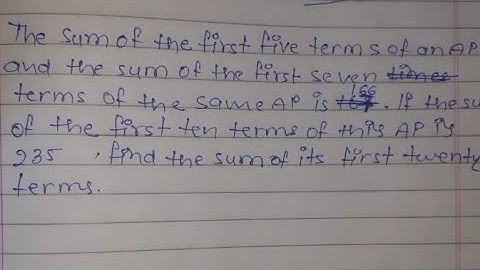 The sum of the first five terms of an AP
and the sum of the first seven times
terms of the same AP is 166. If the su
of the first ten terms of this AP is
235, find the sum of its first twenty
terms.